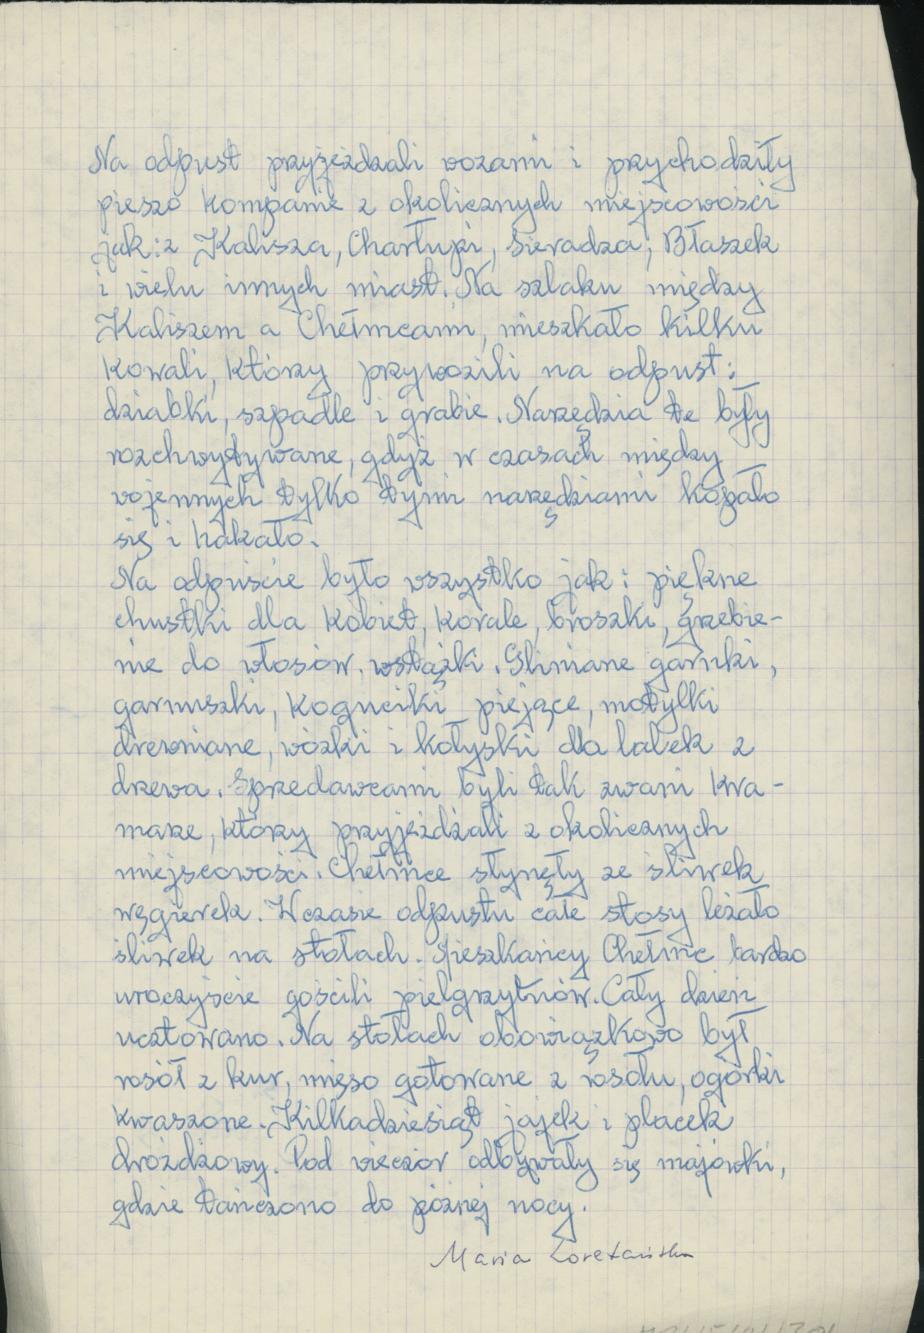 Na odpust przyjeżdzali wozami i przychodziły
pieszo kompanie z okolicznych miejscowości
jak: z Kalisza, Charłupi, Sieradza, Błaszek
i wielu innych miast. Na szlaku między
Kaliszem a Chełmcami, mieszkało kilku
kowali, którzy przywozili na odpust:
dziabki, szpadle i grabie. Narzędzia te były
rozchwytywane, gdyż w czasach między
wojennych tylko tymi narzędziami kopało
się i hakało.
Na odpuście było wszystko jak: piękne
chustki dla kobiet, korale, broszki, grzebie-
nie do włosów, wstążki. Gliniane garnki,
garnuszki, koguciki piejące, motylki
drewniane, wózki i kołyski dla lalek z
drzewa. Sprzedawcami byli tak zwani kra-
marze, którzy przyjeżdżali z okolicznych
miejscowości. Chełmce słynęły ze śliwek
węgierek. W czasie odpustu całe stosy leżało
śliwek na stołach. Mieszkańcy Chełmc bardzo
uroczyście gościli pielgrzymów. Cały dzien
ucztowano. Na stołach obowiązkowo był
rosół z kur, mięso gotowane z rosołu, ogórki
kwaszone. Kilkadziesiąt jajek i placek
drożdżowy. Pod wieczór odbywały się majówki,
gdzie tańczono do późnej nocy.
Maria Loretańska